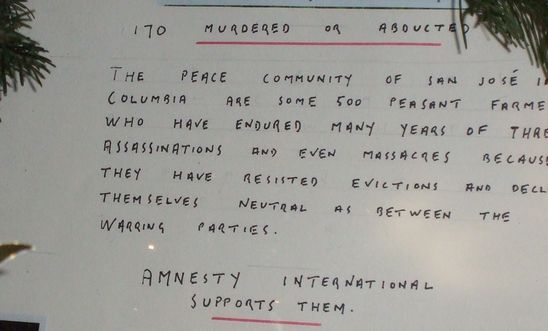 170 MURDERED OR ABDUCTED
THE PEACE COMMUNITY OF SAN JOSÉ
COLUMBIA ARE SOME 500 PEASANT FARME
WHO HAVE ENDURED MANY YEARS OF THRE
ASSASSINATIONS AND EVEN MASSACRES BECAUS
THEY HAVE RESISTED EVICTIONS AND DECL
THEMSELVES NEUTRAL AS BETWEEN THE
WARRING PARTIES.
AMNESTY INTERNATIONAL
SUPPORTS THEM.